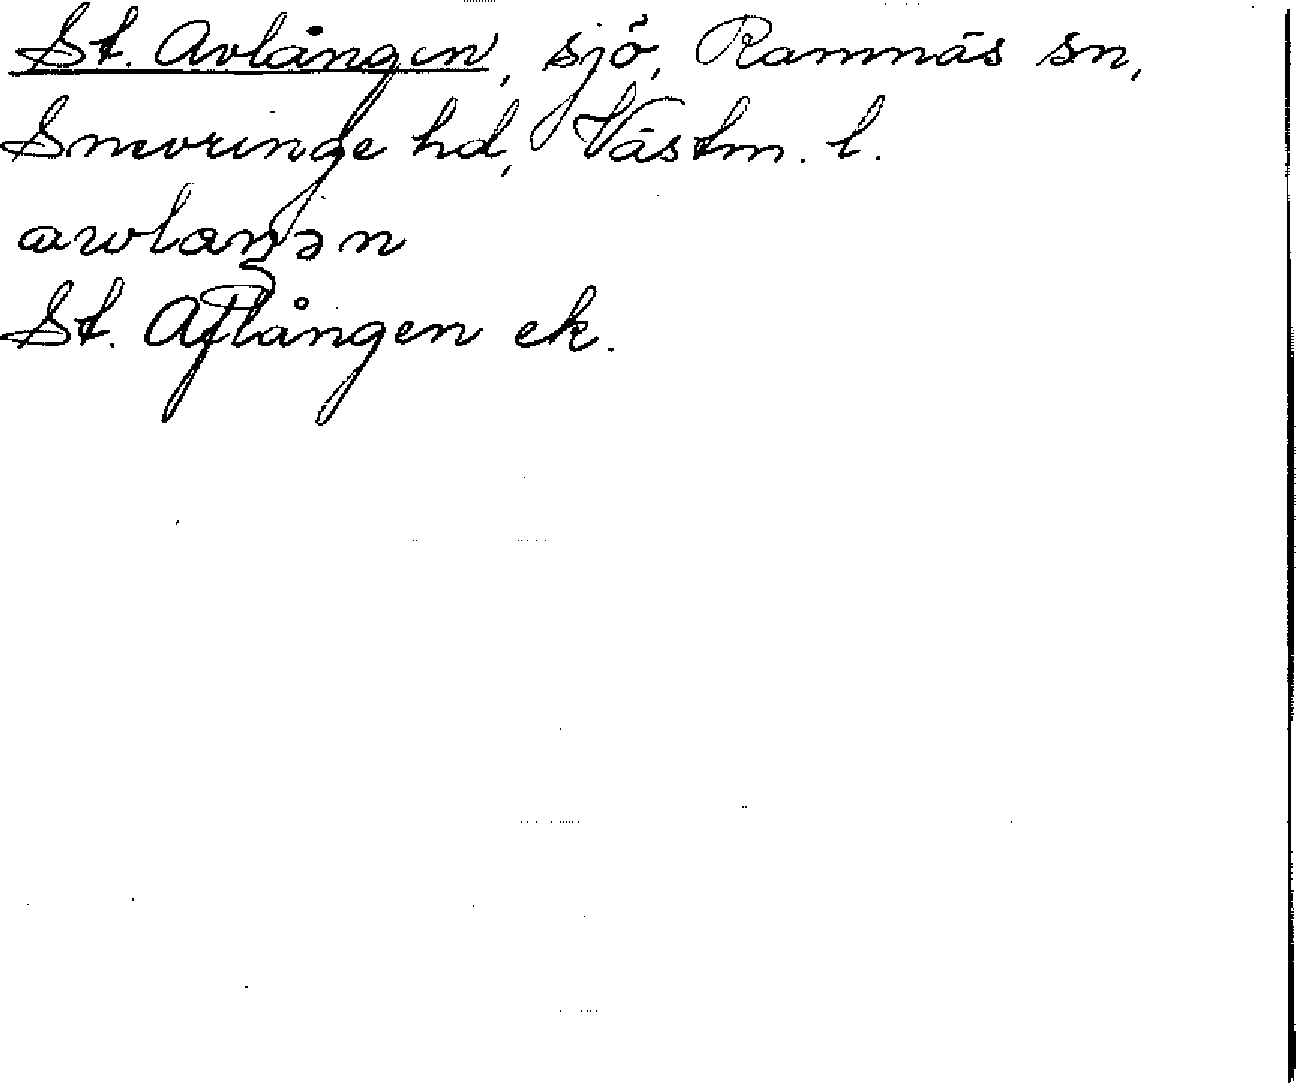 St. Avlången, sjö, Ramnäs sn,
Snevringe hd, Västm. l.
St. Aflången ek.